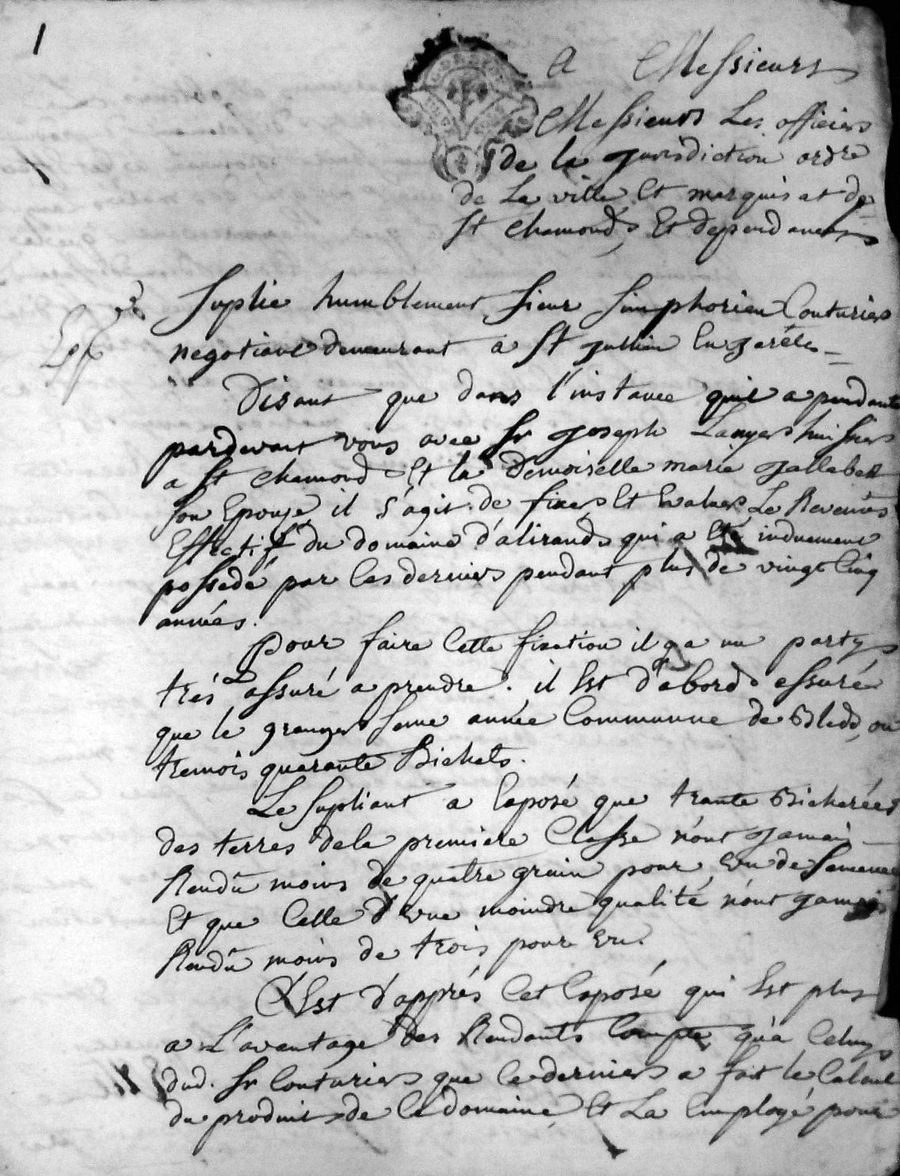 1
A Messieurs
Messieurs Les officiers
de la jurisdiction ordre
de La ville Et marquisat de
St chamond, Et dependances
Suplie humblement Sieur Simphorien Couturier
negotiant demeurant a St jullien En jarêts
Disant que dans l'instance quil a pendante
pardevant vous avec Sr joseph huissier
a St chamond Et la Demoiselle marie
Son Epouse il s'agit de fixer Et Evaluer Le Revenus
Effectif du domaine d'alirands qui a Eté induement
possedé par Ces derniers pendant plus de vingt Cinq
années.
pour faire Cette fixation il y a un party
trés assuré a prendre. il Est d'abord assuré
que le granger Seme année Commune de Bled, ou
tremois quarante Bichets.
Le Supliant a Exposé que trante Bicherées
des terres de la premiere Classe n'ont jamais
Rendû moins de quatre grain pour un de Semence
Et que Celle d'une moindre qualité n'ont jamais
Rendû moins de trois pour un.
C'Est d'apprés Cet Exposé qui Est plus
a L'aventage des Rendants Compte qu'a Celuy
dud. Sr Couturier que Ce dernier a fait le Calcul
du produit de Ce domaine, Et La Employé pour